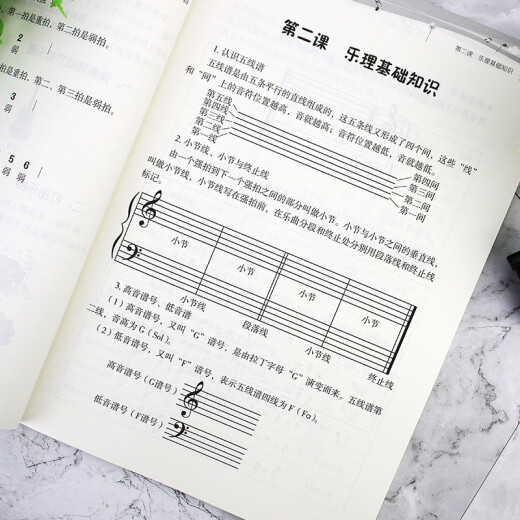 第一拍是重拍，第二拍是弱拍。
2
弱
是重拍，第二、第三拍是弱拍。
3
弱
5 6
弱 弱
第二课 乐理基础知识
第二课 乐理基础知识
1. 认识五线谱
五线谱是由五条平行的直线组成的，这五条线又形成了四个间，这些“线”
和“间”上的音符位置越高，音就越高；音符位置越低，音就越低。
第五线
第四线
第三线
第二线
第一线
第四间
第三间
第二间
第一间
2. 小节线，小节与终止线
由一个强拍到下一个强拍之间的部分叫做小节。小节与小节之间的垂直线，
叫做小节线，小节线写在强拍前，在乐曲分段和终止处分别用段落线和终止线
标记。
小节 小节 小节 小节
小节线 段落线 小节线 终止线
3. 高音谱号、低音谱
（1）高音谱号，又叫“G”谱号，是由拉丁字母“G”演变而来。五线谱第
二线，音高为 G（Sol）。
（2）低音谱号，又叫“F”谱号，表示五线谱四线为 F（Fa）。
高音谱号（G谱号）
低音谱号（F谱号）